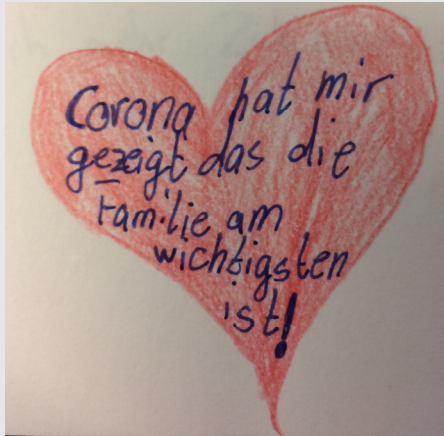 Corona hat mir
gezeigt das die
Familie am
wichtigsten
ist!